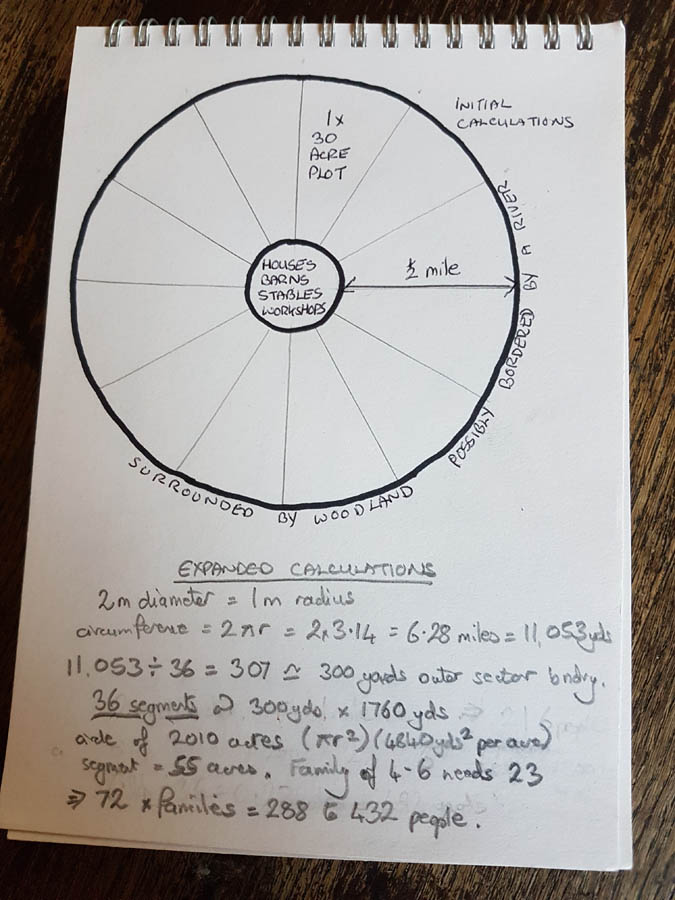 INITIAL
CALCULATIONS
1x
30
ACRE
PLOT
HOUSES
BARNS
STABLES
WORKSHOPS
½ mile
POSSIBLY BORDERED BY A RIVER
SURROUNDED BY WOODLAND
EXPANDED CALCULATIONS
2m diameter = 1m radius
circumference = 2πr = 2x3.14 = 6.28 miles = 11,053 yds
11,053 ÷ 36 = 307 ≃ 300 yards outer sector bndry.
36 segments 300yds x 1760 yds
of 2010 acres (πr²) (4840yds² per acre)
segment = 55 acres. Family of 4-6 needs 23
⇒ 72 x families = 288 to 432 people.